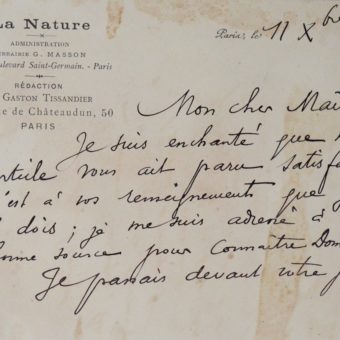 La Nature
Paris, le 11 Xbre
ADMINISTRATION
LIBRAIRIE G. MASSON
Boulevard Saint-Germain. - Paris
RÉDACTION
GASTON TISSANDIER
de Châteaudun, 50
PARIS
Mon cher
Je suis enchanté que
article vous ait paru
c'est à vos renseignements que
dois ; je me suis adressé à
bonne source pour connaître
Je passais devant votre